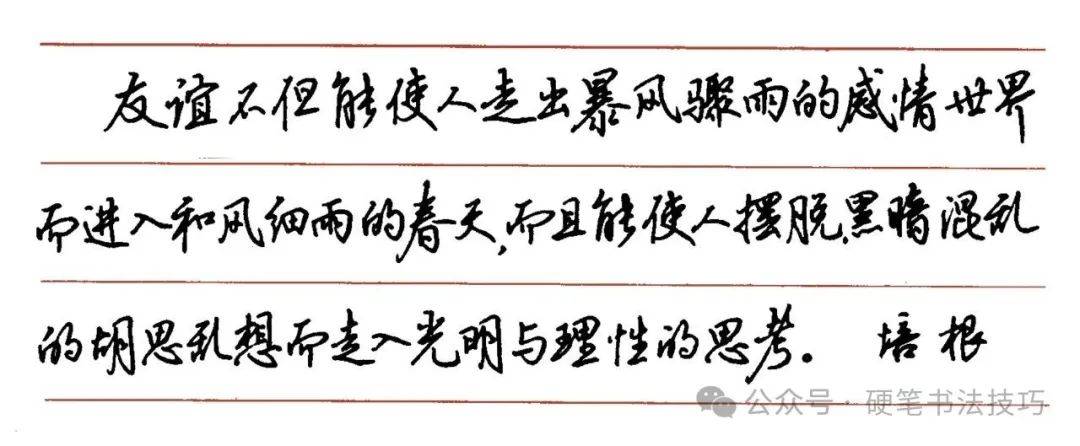 友谊不但能使人走出暴风骤雨的感情世界
而进入和风细雨的春天,而且能使人摆脱黑暗混乱
的胡思乱想而走入光明与理性的思考。 培根
公众号·硬笔书法技巧